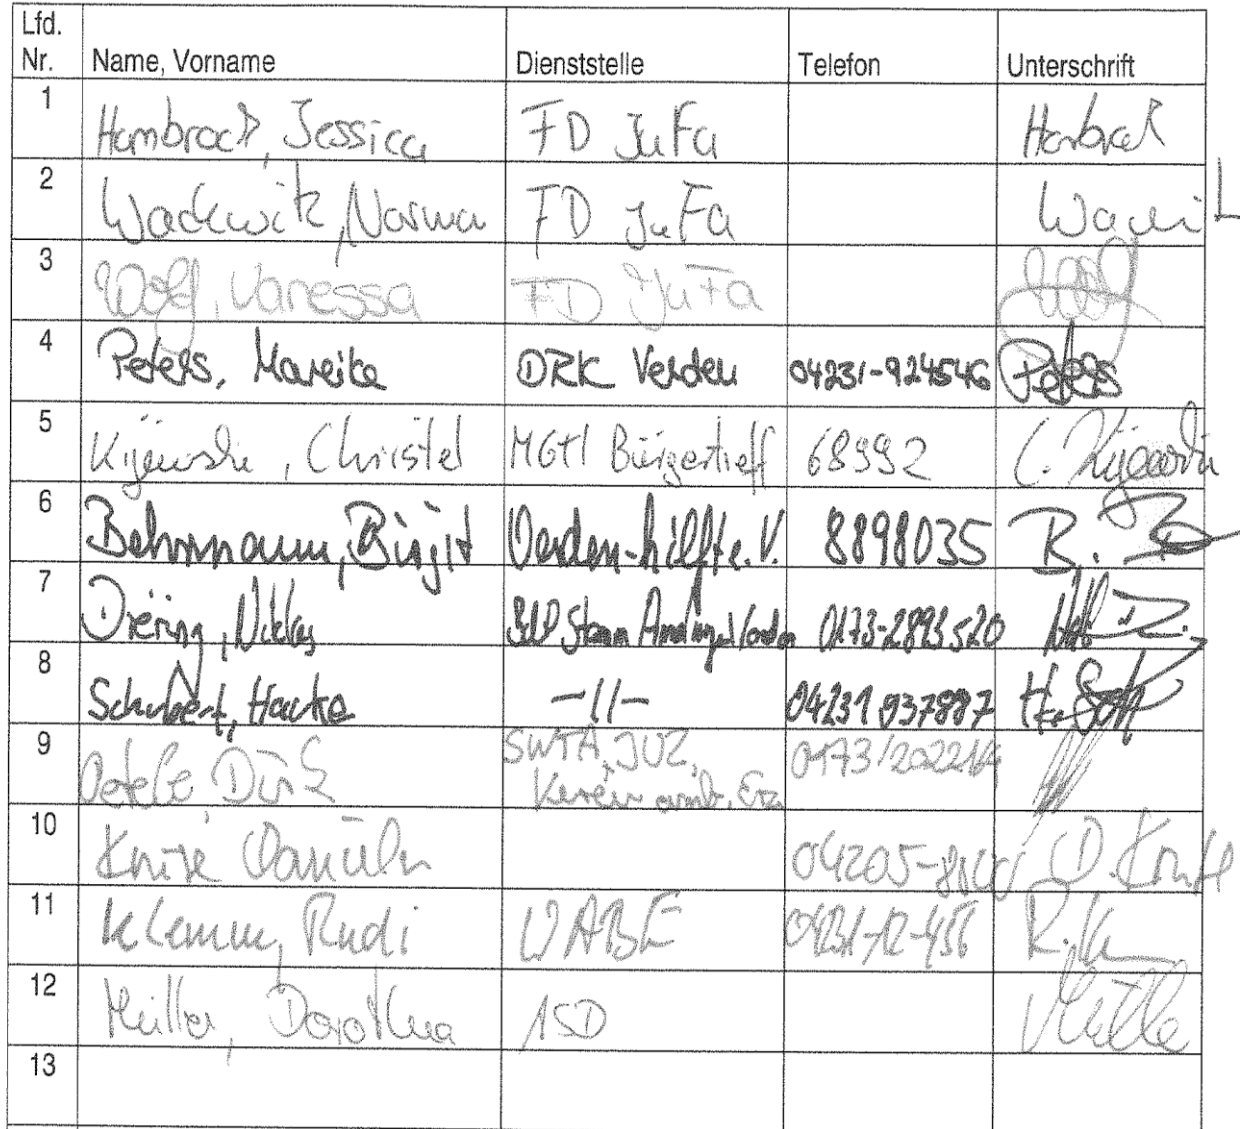 Lfd.
Nr. Name, Vorname Dienststelle Telefon Unterschrift
1 Hambrock, Jessica FD JuFa Hambrock
2 Wackwitz, Norma FD JuFa
3 Wolf, Vanessa FD JuFa Wolf
4 Peters, Mareike DRK Verden 04231-924546 Peters
5 Kijewski, Christel MGH Bürgertreff 68992 C. Kijewski
6 Behrmann, Birgit Verden-hilft e.V. 8898035 B.
7 Diering, Niklas Stamm 0173-2893520
8 Schubert, Hauke -11- 04231 937887
9 Dirk SWTA, JUZ,
10 04205-
11 Klemm, Rudi WABE 04231-12-456 R.
12 Müller, Dorothea ASD Müller
13